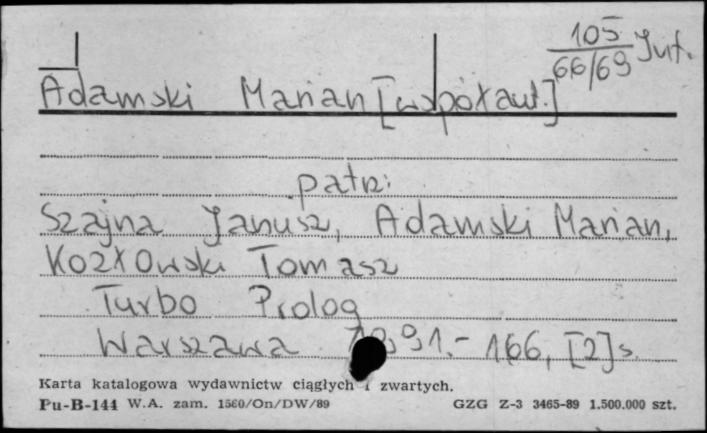 105
66/69 Inf.
Adamski Marian [współaut.]
patrz:
Szajna Janusz, Adamski Marian,
Kozłowski Tomasz
Turbo Prolog
Warszawa 1991.- 166, [2] s.
Karta katalogowa wydawnictw ciągłych i zwartych.
Pu-B-144 W.A. zam. 1560/On/DW/89 GZG Z-3 3465-89 1.500.000 szt.